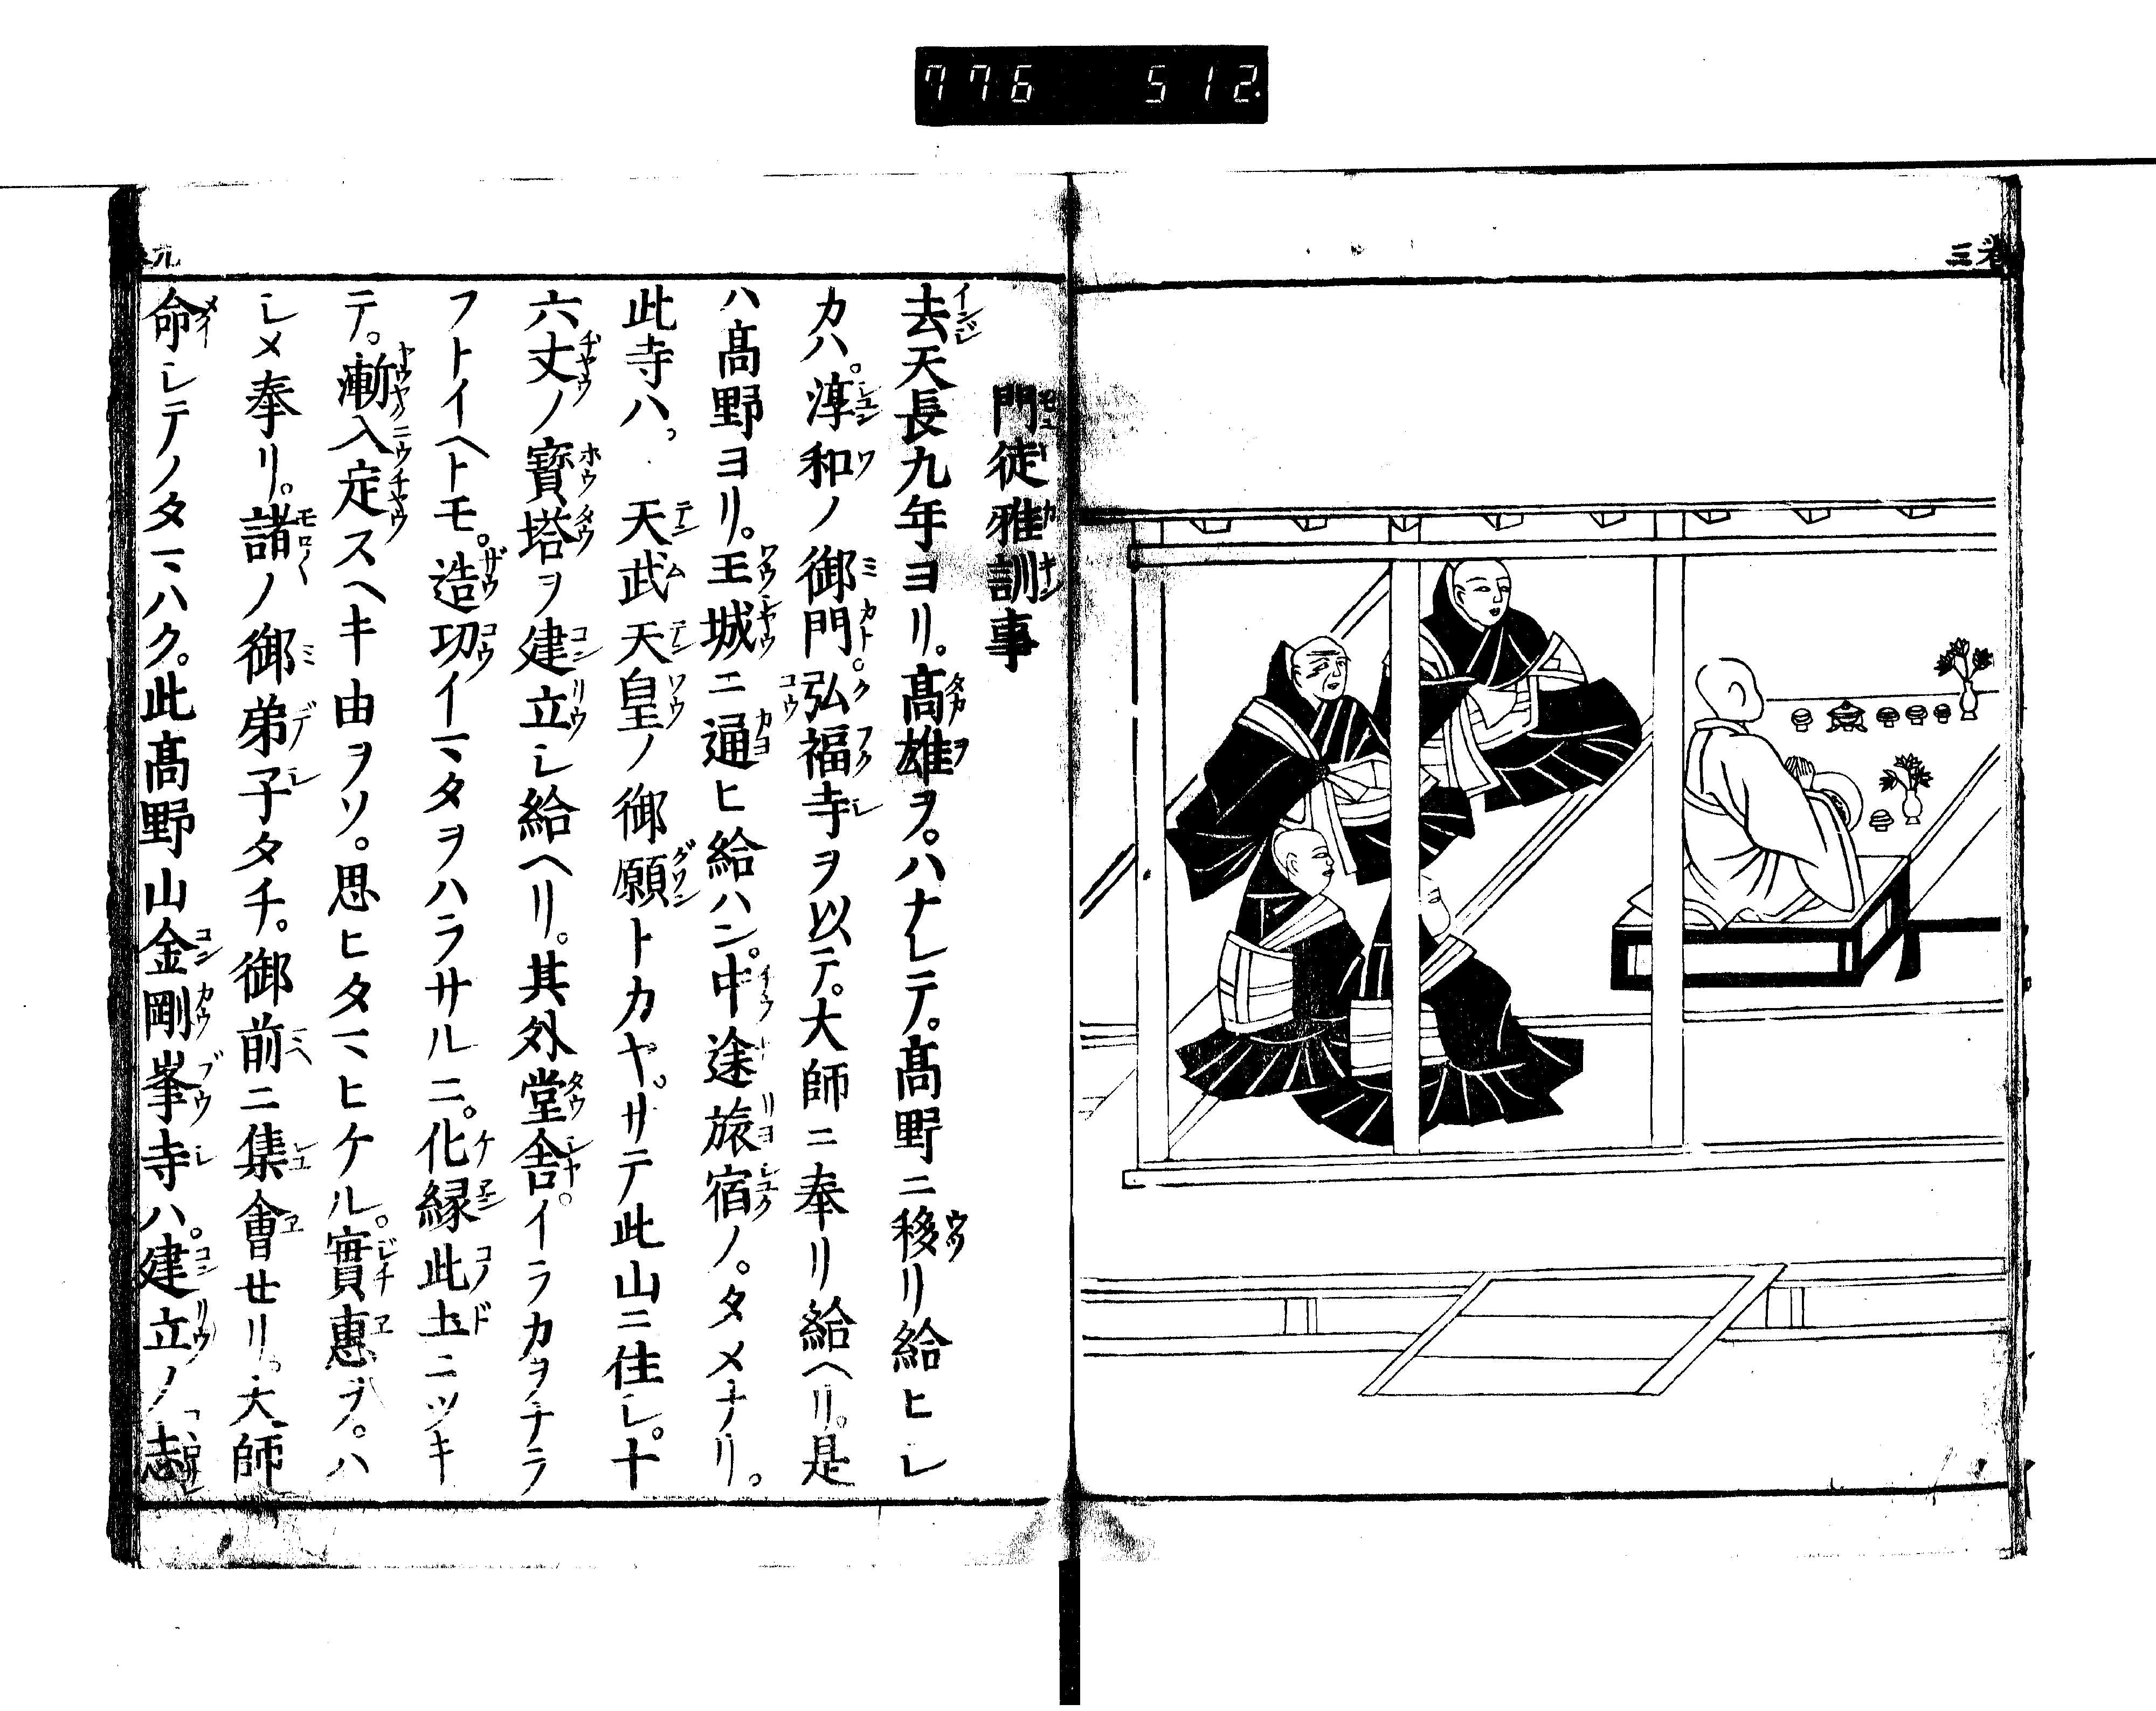 776 512
三巻
門徒雅訓事
去天長九年ヨリ。髙雄ヲ。ハナレテ。髙野ニ移リ給ヒシ
カハ。淳和ノ御門。弘福寺ヲ以テ。大師ニ奉リ給ヘリ。是
ハ髙野ヨリ。王城ニ通ヒ給ハン。中途旅宿ノ。タメナリ。
此寺ハ。天武天皇ノ御願トカヤ。サテ此山ニ住シ。十
六丈ノ寳塔ヲ建立シ給ヘリ。其外堂舎。イラカヲナラ
フトイヘトモ。造功イマタヲハラサルニ。化縁此土ニツキ
テ。漸入定スヘキ由ヲソ。思ヒタマヒケル。實惠ヲ。ハ
シメ奉リ。諸ノ御弟子タチ。御前ニ集會セリ。大師
命シテノタマハク。此髙野山金剛峯寺ハ。建立ノ志